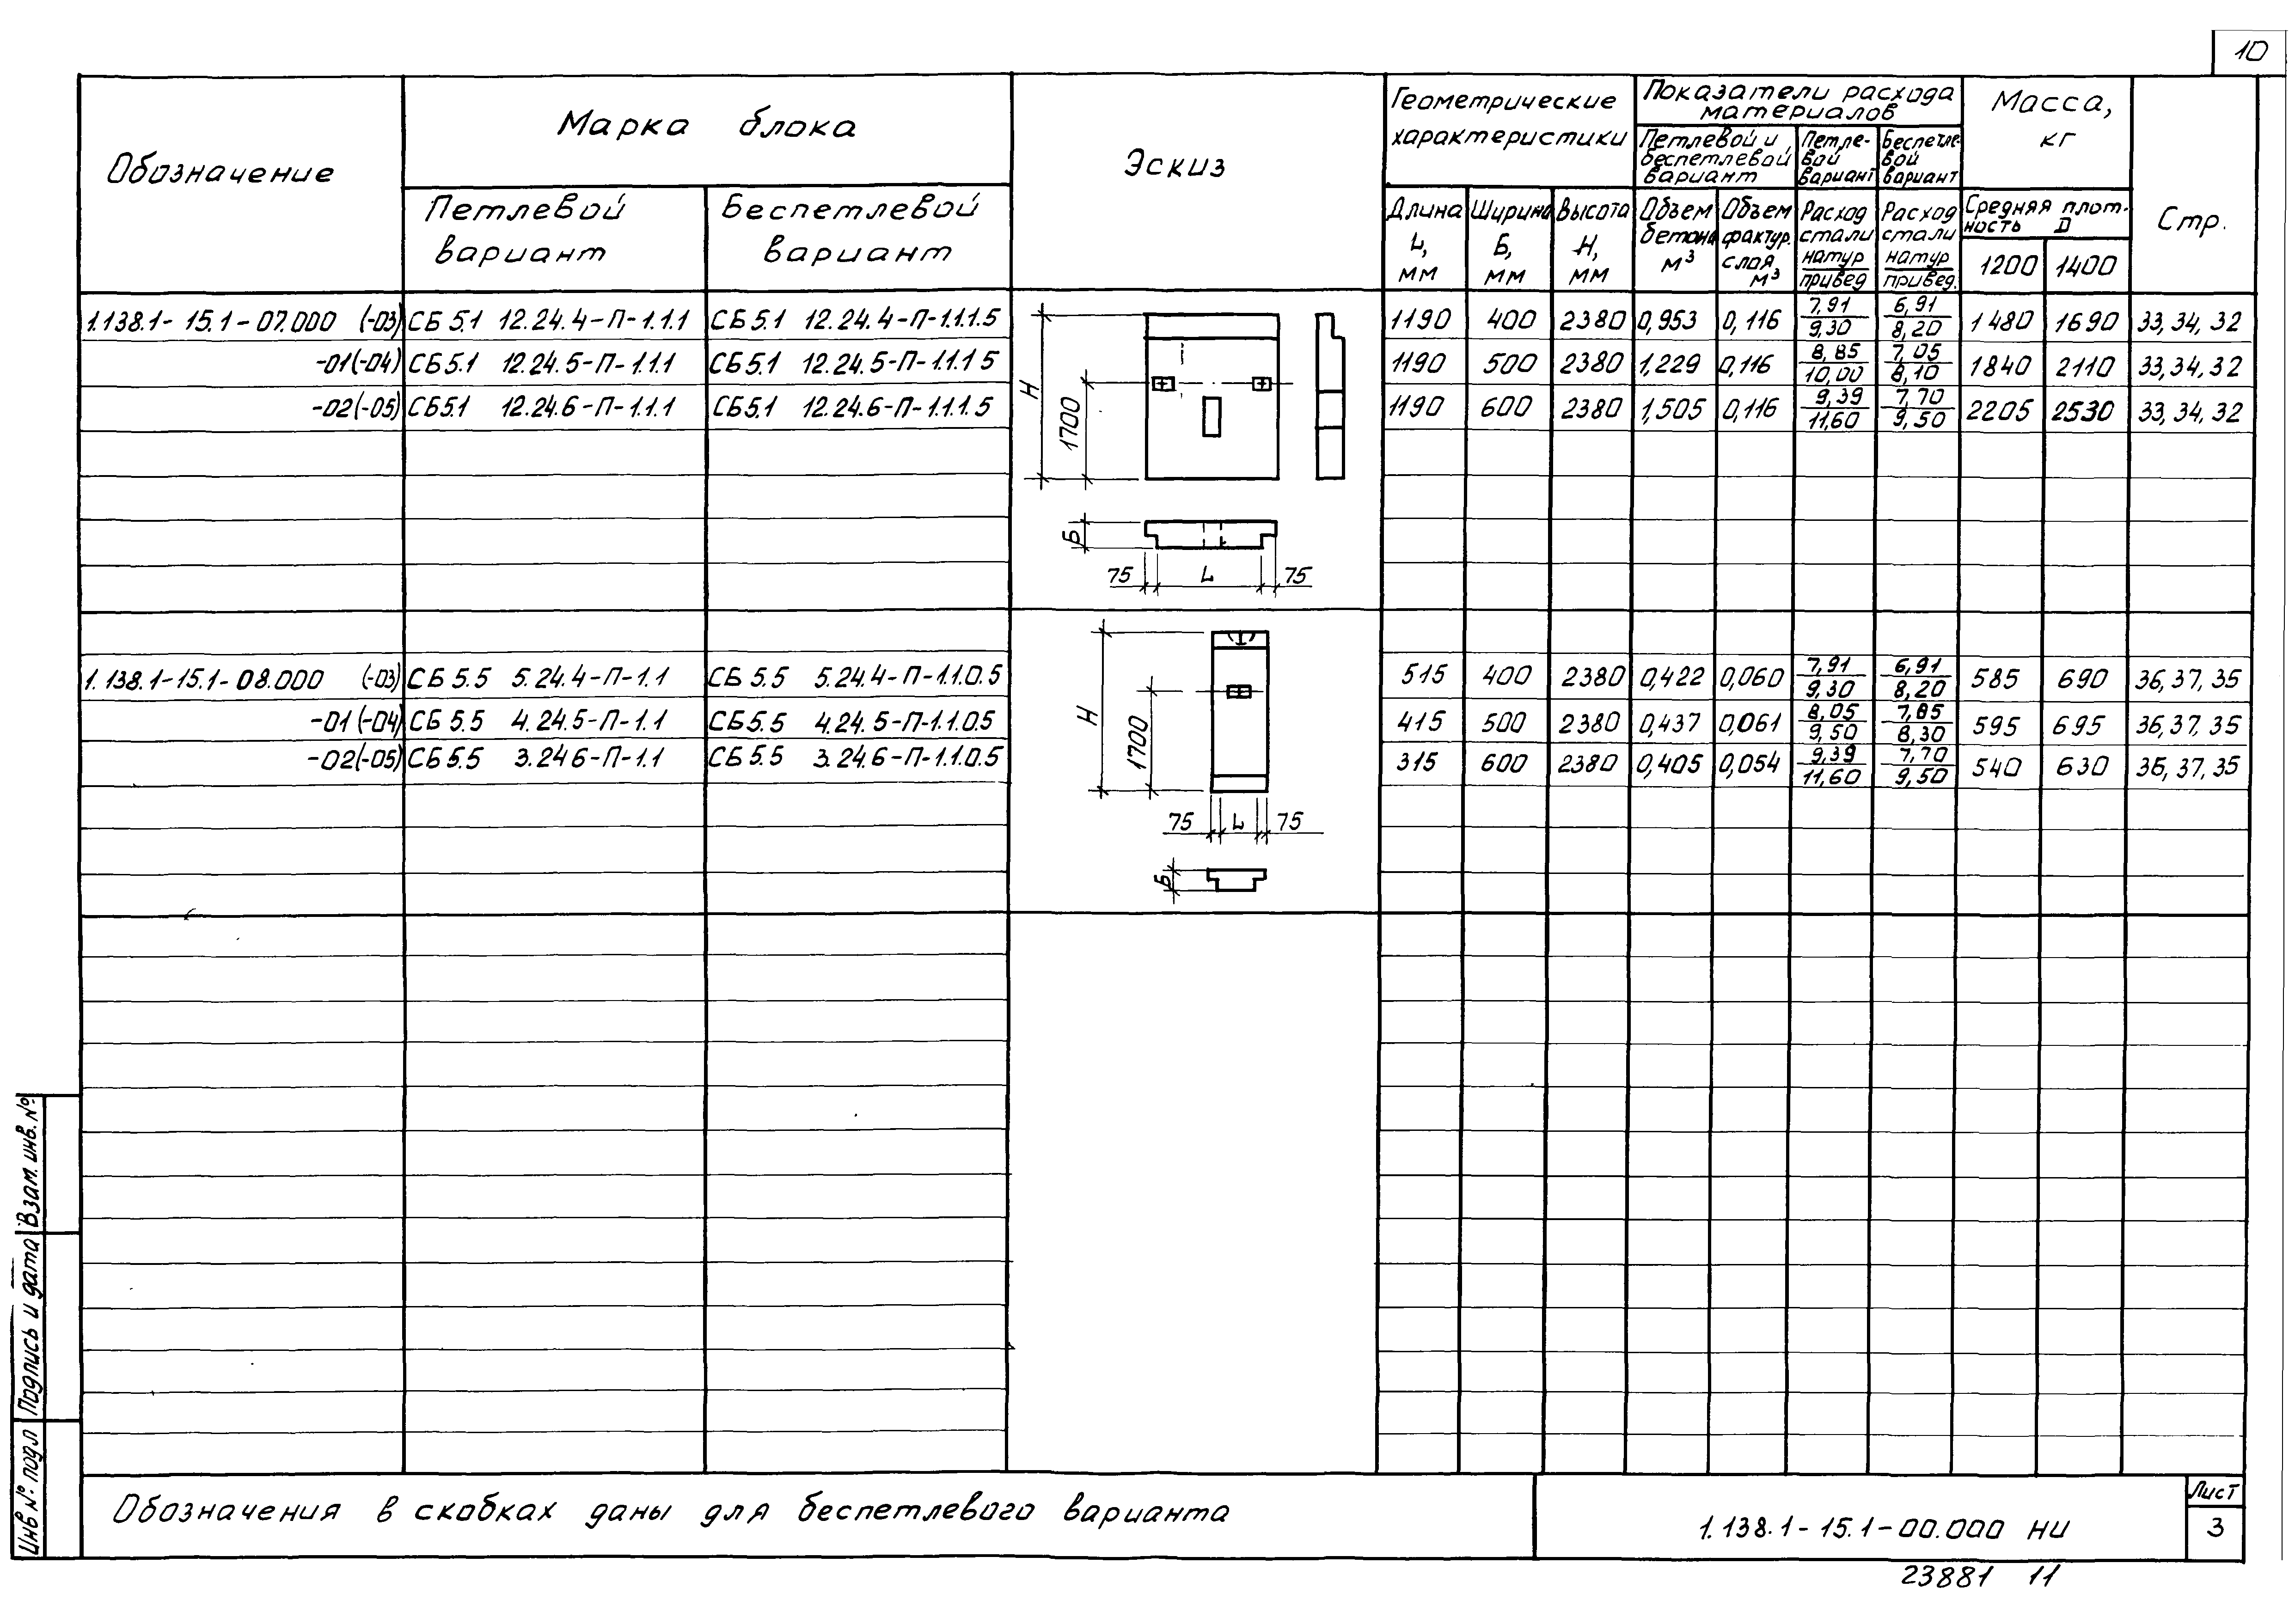 10
Обозначение
Марка блока
Петлевой вариант
Беспетлевой вариант
Эскиз
Геометрические характеристики
Длина L, мм
Ширина Б, мм
Высота H, мм
Показатели расхода материалов
Петлевой и беспетлевой вариант
Петлевой вариант
Беспетлевой вариант
Объем бетона м³
Объем фактур. слоя м³
Расход стали натур привед
Расход стали натур привед.
Масса, кг
Средняя плотность D
1200 1400
Стр.
1.138.1-15.1-07.000 (-03) СБ 5.1 12.24.4-П-1.1.1 СБ 5.1 12.24.4-П-1.1.1.5 1190 400 2380 0,953 0,116 7,91/9,30 6,91/8,20 1480 1690 33, 34, 32
-01(-04) СБ 5.1 12.24.5-П-1.1.1 СБ 5.1 12.24.5-П-1.1.1 5 1190 500 2380 1,229 0,116 8,85/10,00 7,05/8,10 1840 2110 33, 34, 32
-02(-05) СБ 5.1 12.24.6-П-1.1.1 СБ 5.1 12.24.6-П-1.1.1.5 1190 600 2380 1,505 0,116 9,39/11,60 7,70/9,50 2205 2530 33, 34, 32
H
1700
Б
75 L 75
1.138.1-15.1-08.000 (-03) СБ 5.5 5.24.4-П-1.1 СБ 5.5 5.24.4-П-1.1.0.5 515 400 2380 0,422 0,060 7,91/9,30 6,91/8,20 585 690 36, 37, 35
-01(-04) СБ 5.5 4.24.5-П-1.1 СБ 5.5 4.24.5-П-1.1.0.5 415 500 2380 0,437 0,061 8,05/9,50 8,30 595 695 36, 37, 35
-02(-05) СБ 5.5 3.24 6-П-1.1 СБ 5.5 3.24.6-П-1.1.0.5 315 600 2380 0,405 0,054 9,39/11,60 7,70/9,50 540 630 36, 37, 35
H
1700
75 L 75
Б
Взам. инв. №
Подпись и дата
Инв № подл
Обозначения в скобках даны для беспетлевого варианта
1.138.1-15.1-00.000 НИ
Лист
3
23881 11